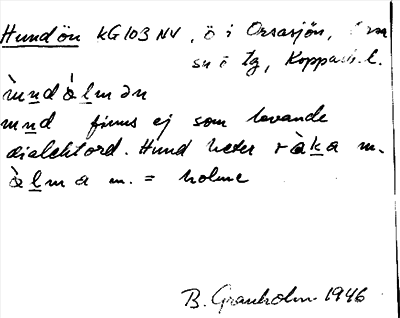 Hundön KG103 NV, ö i Orsasjön,
sn o tg, Kopparb. l.
ùndòlmən
und finns ej som levande
dialektord. Hund heter ràka m.
òlma m. = holme
B. Granholm 1946